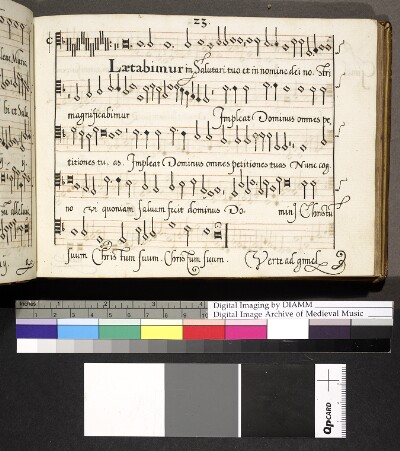 23.
Lætabimur in Salutari tuo et in nomine dei no. stri
magnificabimur Impleat Dominus omnes pe
titiones tu. as. Impleat Dominus omnes petitiones tuas Nunc cog
no vi quoniam saluum fecit dominus Do. min Christu
suum Chris tum suum. Christum suum. Verte ad gimel
bi et Salu
su alleluia
inches 1 2 3 4
Digital Imaging by DIAMM
Digital Image Archive of Medieval Music
1 2 3 4 5 6 7 8 9 10
QPCARD